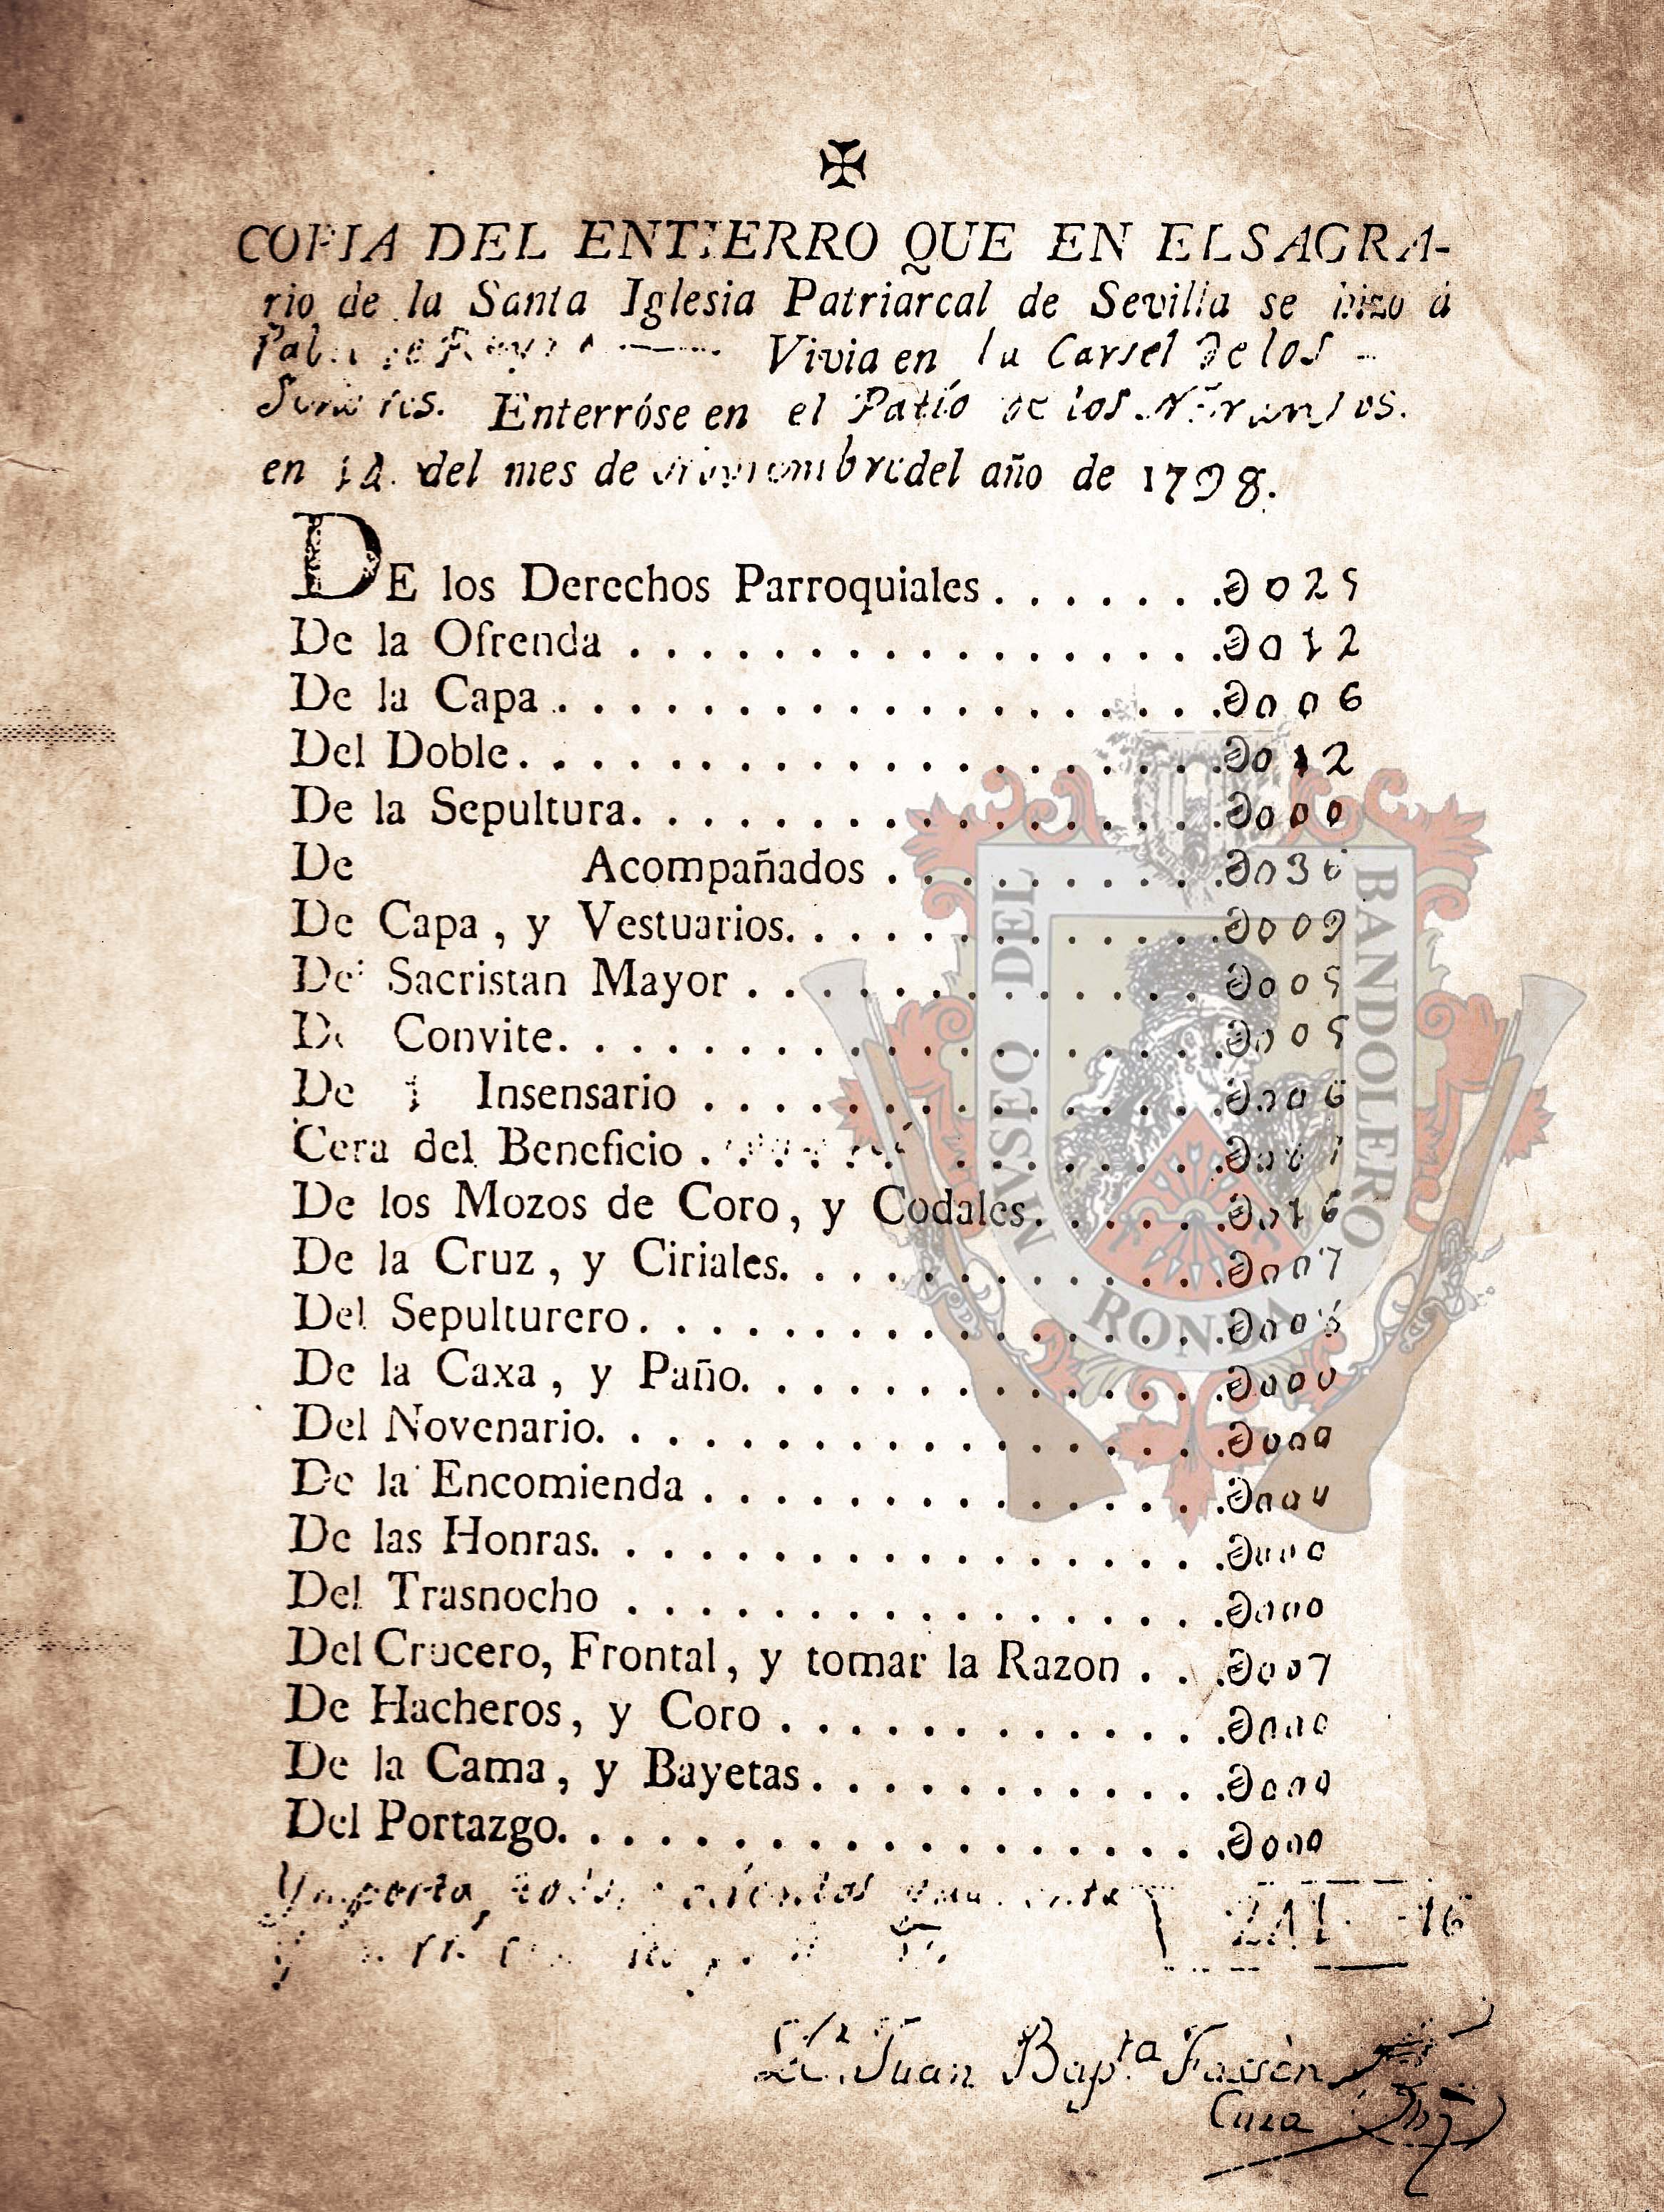 COPIA DEL ENTIERRO QUE EN EL SAGRA-
rio de la Santa Iglesia Patriarcal de Sevilla se hizo á
Vivia en la Carsel de los
Señores. Enterróse en el Patio de los Naranjos.
en del mes de Noviembre del año de 1798.
DE los Derechos Parroquiales . . . . . . . 0025
De la Ofrenda . . . . . . . 0012
De la Capa . . . . . . . 0006
Del Doble . . . . . . . 0012
De la Sepultura . . . . . . . 0000
De Acompañados . . . . . . . 0036
De Capa, y Vestuarios . . . . . . . 0009
Del Sacristan Mayor . . . . . . . 0005
De Convite . . . . . . . 0005
De 1 Insensario . . . . . . . 0006
Cera del Beneficio . . . . . . .
De los Mozos de Coro, y Codales . . . . . . 0016
De la Cruz, y Ciriales . . . . . . . 0007
Del Sepulturero . . . . . . .
De la Caxa, y Paño . . . . . . . 0000
Del Novenario . . . . . . . 0000
De la Encomienda . . . . . . . 0000
De las Honras . . . . . . . 0000
Del Trasnocho . . . . . . . 0000
Del Crucero, Frontal, y tomar la Razon . . . 0007
De Hacheros, y Coro . . . . . . . 0000
De la Cama, y Bayetas . . . . . . . 0000
Del Portazgo . . . . . . . 0000
Ymporta
Juan Bapta
Cura
MVSEO DEL BANDOLERO
RONDA